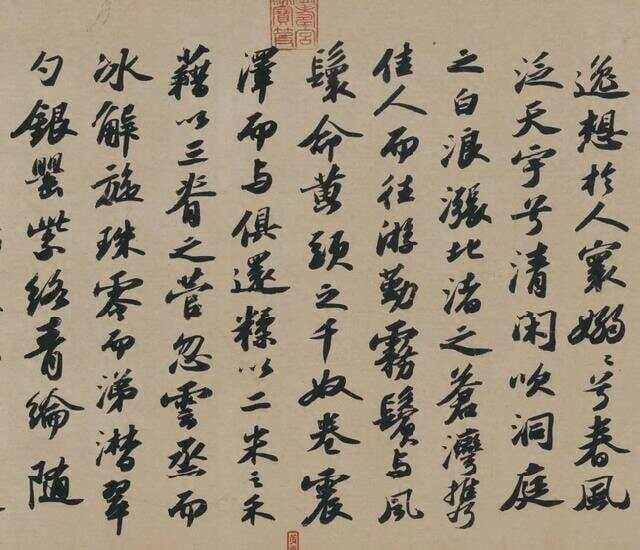 逸想於人寰嫋〻兮春風
泛天宇兮清閑吹洞庭
之白浪漲北渚之蒼灣攜
佳人而往游勤霧鬢与風
鬟命黃頭之千奴卷震
澤而与俱還糅以二米之禾
藉以三脊之菅忽雲烝而
冰解旋珠零而涕潸翠
勺銀罌紫絡青綸随